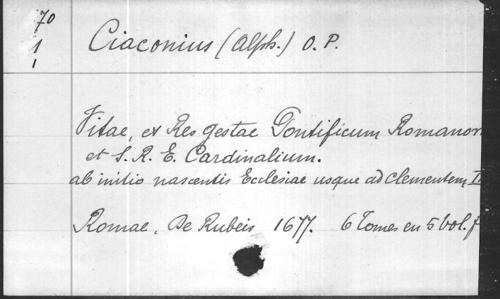 70
1
1
Ciaconius (Alph.) O. P.
Vitae, et Res gestae Pontificum Romanor
et S. R. E. Cardinalium.
ab initio nascentis Ecclesiae usque ad Clementem I
Romae, De Rubeis 1677. 6 Tomes en 5 vol. f